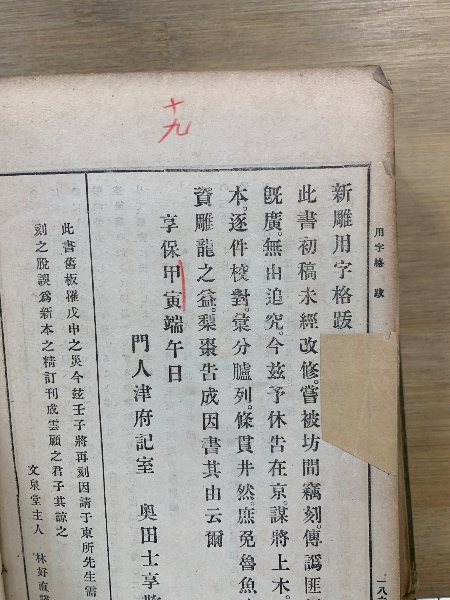 十九
用字格 跋
新雕用字格跋
此書初稿未經改修。嘗被坊間竊刻。傳譌匪
旣廣。無由追究。今玆予休告在京。謀將上木。
本。逐件校對。彙分臚列。條貫井然。庶免魯魚
資雕龍之益。梨棗告成因書其由云爾
享保甲寅端午日
門人津府記室 奥田士亨
此書舊板罹戊申之災今玆壬子將再刻因請于東所先生需
刻之脫誤爲新本之精訂刊成雲顧之君子其諒之
文泉堂主人 林好直